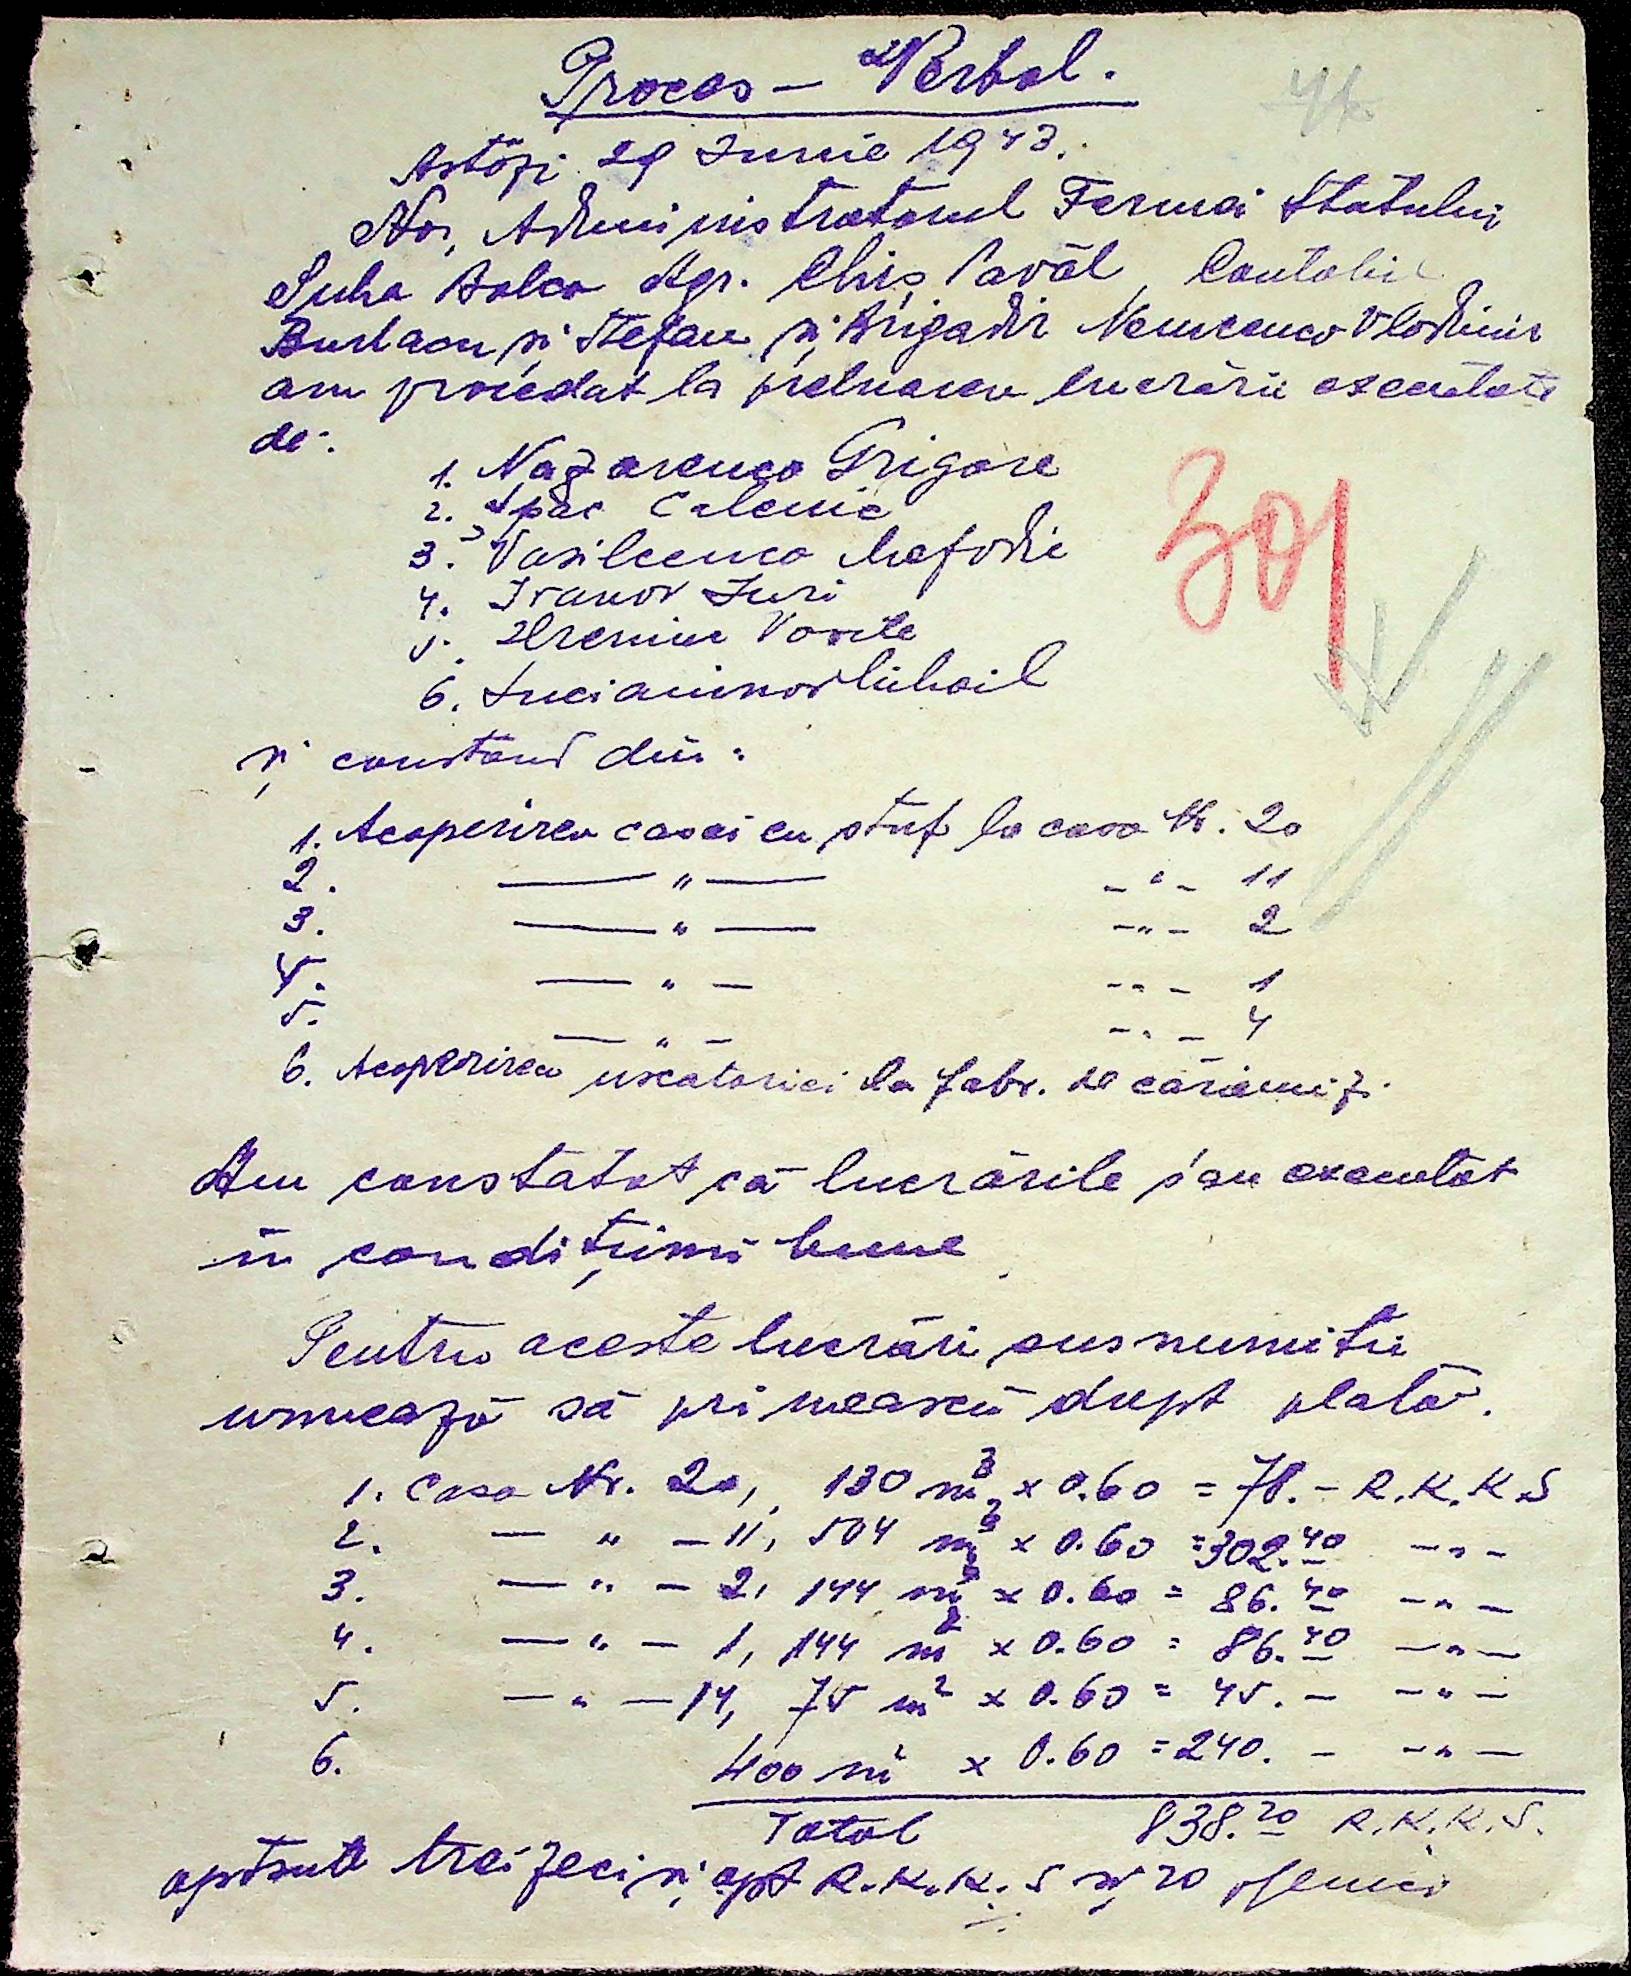 Proces – Verbal.
Astăzi 29 Iunie 1943.
Noi, Administratorul Fermei Statului
Suha Balca Agr. Chiș Pavăl, Contabil
Burlacu și Ștefan și Brigadir Nemcenco Vladimir
am procedat la preluarea lucrării executate
de:
1. Nazarenco Grigore
2. Spac Calenic
3. Vasilcenco Mefodie
4. Ivanov Iuri
5. Vasile
6. Mihail
și constând din:
1. Acoperirea casei cu stuf la casa Nr. 20
2. — " — - " - 11
3. — " — - " - 2
4. — " — - " - 1
5. — " — - " - 4
6. Acoperirea uscatoriei la fabr. de cărămizi.
Am constatat că lucrările s'au executat
în condițiuni bune
Pentru aceste lucrări susnumiții
urmează să primească drept plată.
1. Casa Nr. 20, 130 m² x 0.60 = 78.- R.K.K.S
2. — " — 11, 504 m² x 0.60 = 302.40 - " -
3. — " — 2, 144 m² x 0.60 = 86.40 - " -
4. — " — 1, 144 m² x 0.60 = 86.40 - " -
5. — " — 14, 75 m² x 0.60 = 45.- - " -
6. 400 m² x 0.60 = 240.- - " -
Total 838.20 R.K.K.S.
optsute treizeci și opt R.K.K.S și 20 pfenici
301